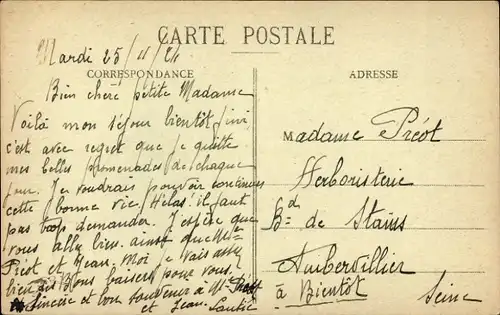 CARTE POSTALE
Mardi 25/11/24
CORRESPONDANCE
ADRESSE
Bien chère petite Madame
Voilà mon séjour bientôt fini
c'est avec regret que je quitte
mes belles promenades de chaque
jour. Je voudrais pouvoir continuer
cette bonne vie. Hélas! il faut
pas trop demander. J'espère que
vous allez bien. ainsi que Mr
Préot et Jean. Moi je vais assez
bien. Bons baisers pour vous.
sincère et bon souvenir à Mr Préot
et Jean.
Madame Préot
Herboristerie
Bd de Stains
Aubervillier
à Bientôt Seine